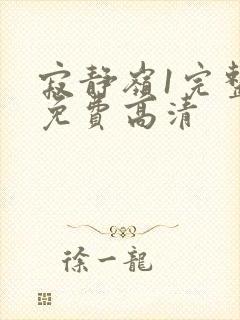 寂静嶺1完整
免費高清
徐一龍